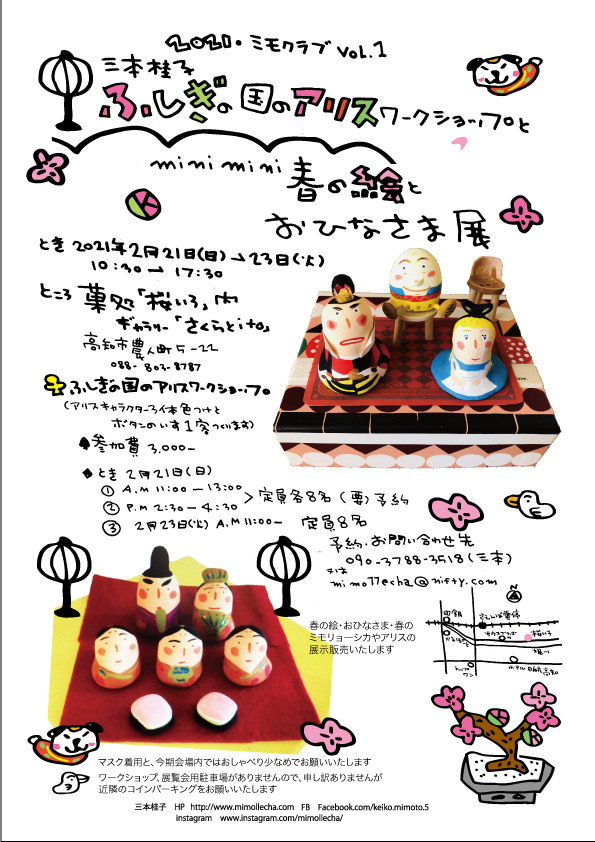 2021. ミモクラブ vol.1
三本桂子
ふしぎの国のアリスワークショップと
mini mini 春の絵と
おひなさま展
とき 2021年2月21日(日)→23日(火)
10:30 → 17:30
ところ 菓処「桜いろ」内
ギャラリー「さくらといろ」
高知市農人町5-22
088-803-8787
ふしぎの国のアリスワークショップ
(アリスキャラクター3体色つけと
ボタンのいす1客つくります)
参加費 3,000-
とき 2月21日(日)
① A.M 11:00 — 13:00
② P.M 2:30 — 4:30
> 定員各8名 (要)予約
③ 2月23日(火) A.M 11:00- 定員8名
予約・お問い合わせ先
090-3788-3518 (三本)
又は
mimollecha@nifty.com
春の絵・おひなさま・春の
ミモリョーシカやアリスの
展示販売いたします
N
桜いろ
堀川
マスク着用と、今期会場内ではおしゃべり少なめでお願いいたします
ワークショップ、展覧会用駐車場がありませんので、申し訳ありませんが
近隣のコインパーキングをお願いいたします
三本桂子 HP http://www.mimollecha.com FB Facebook.com/keiko.mimoto.5
instagram www.instagram.com/mimollecha/